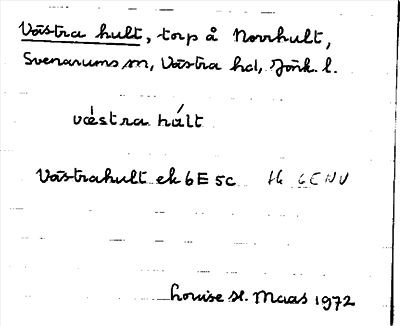 Västra hult, torp å Norrhult,
Svenarums sn, Västra hd, Jönk. l.
västra hált
Västrahult ek 6E 5c H 6E NV
Louise St. Maas 1972